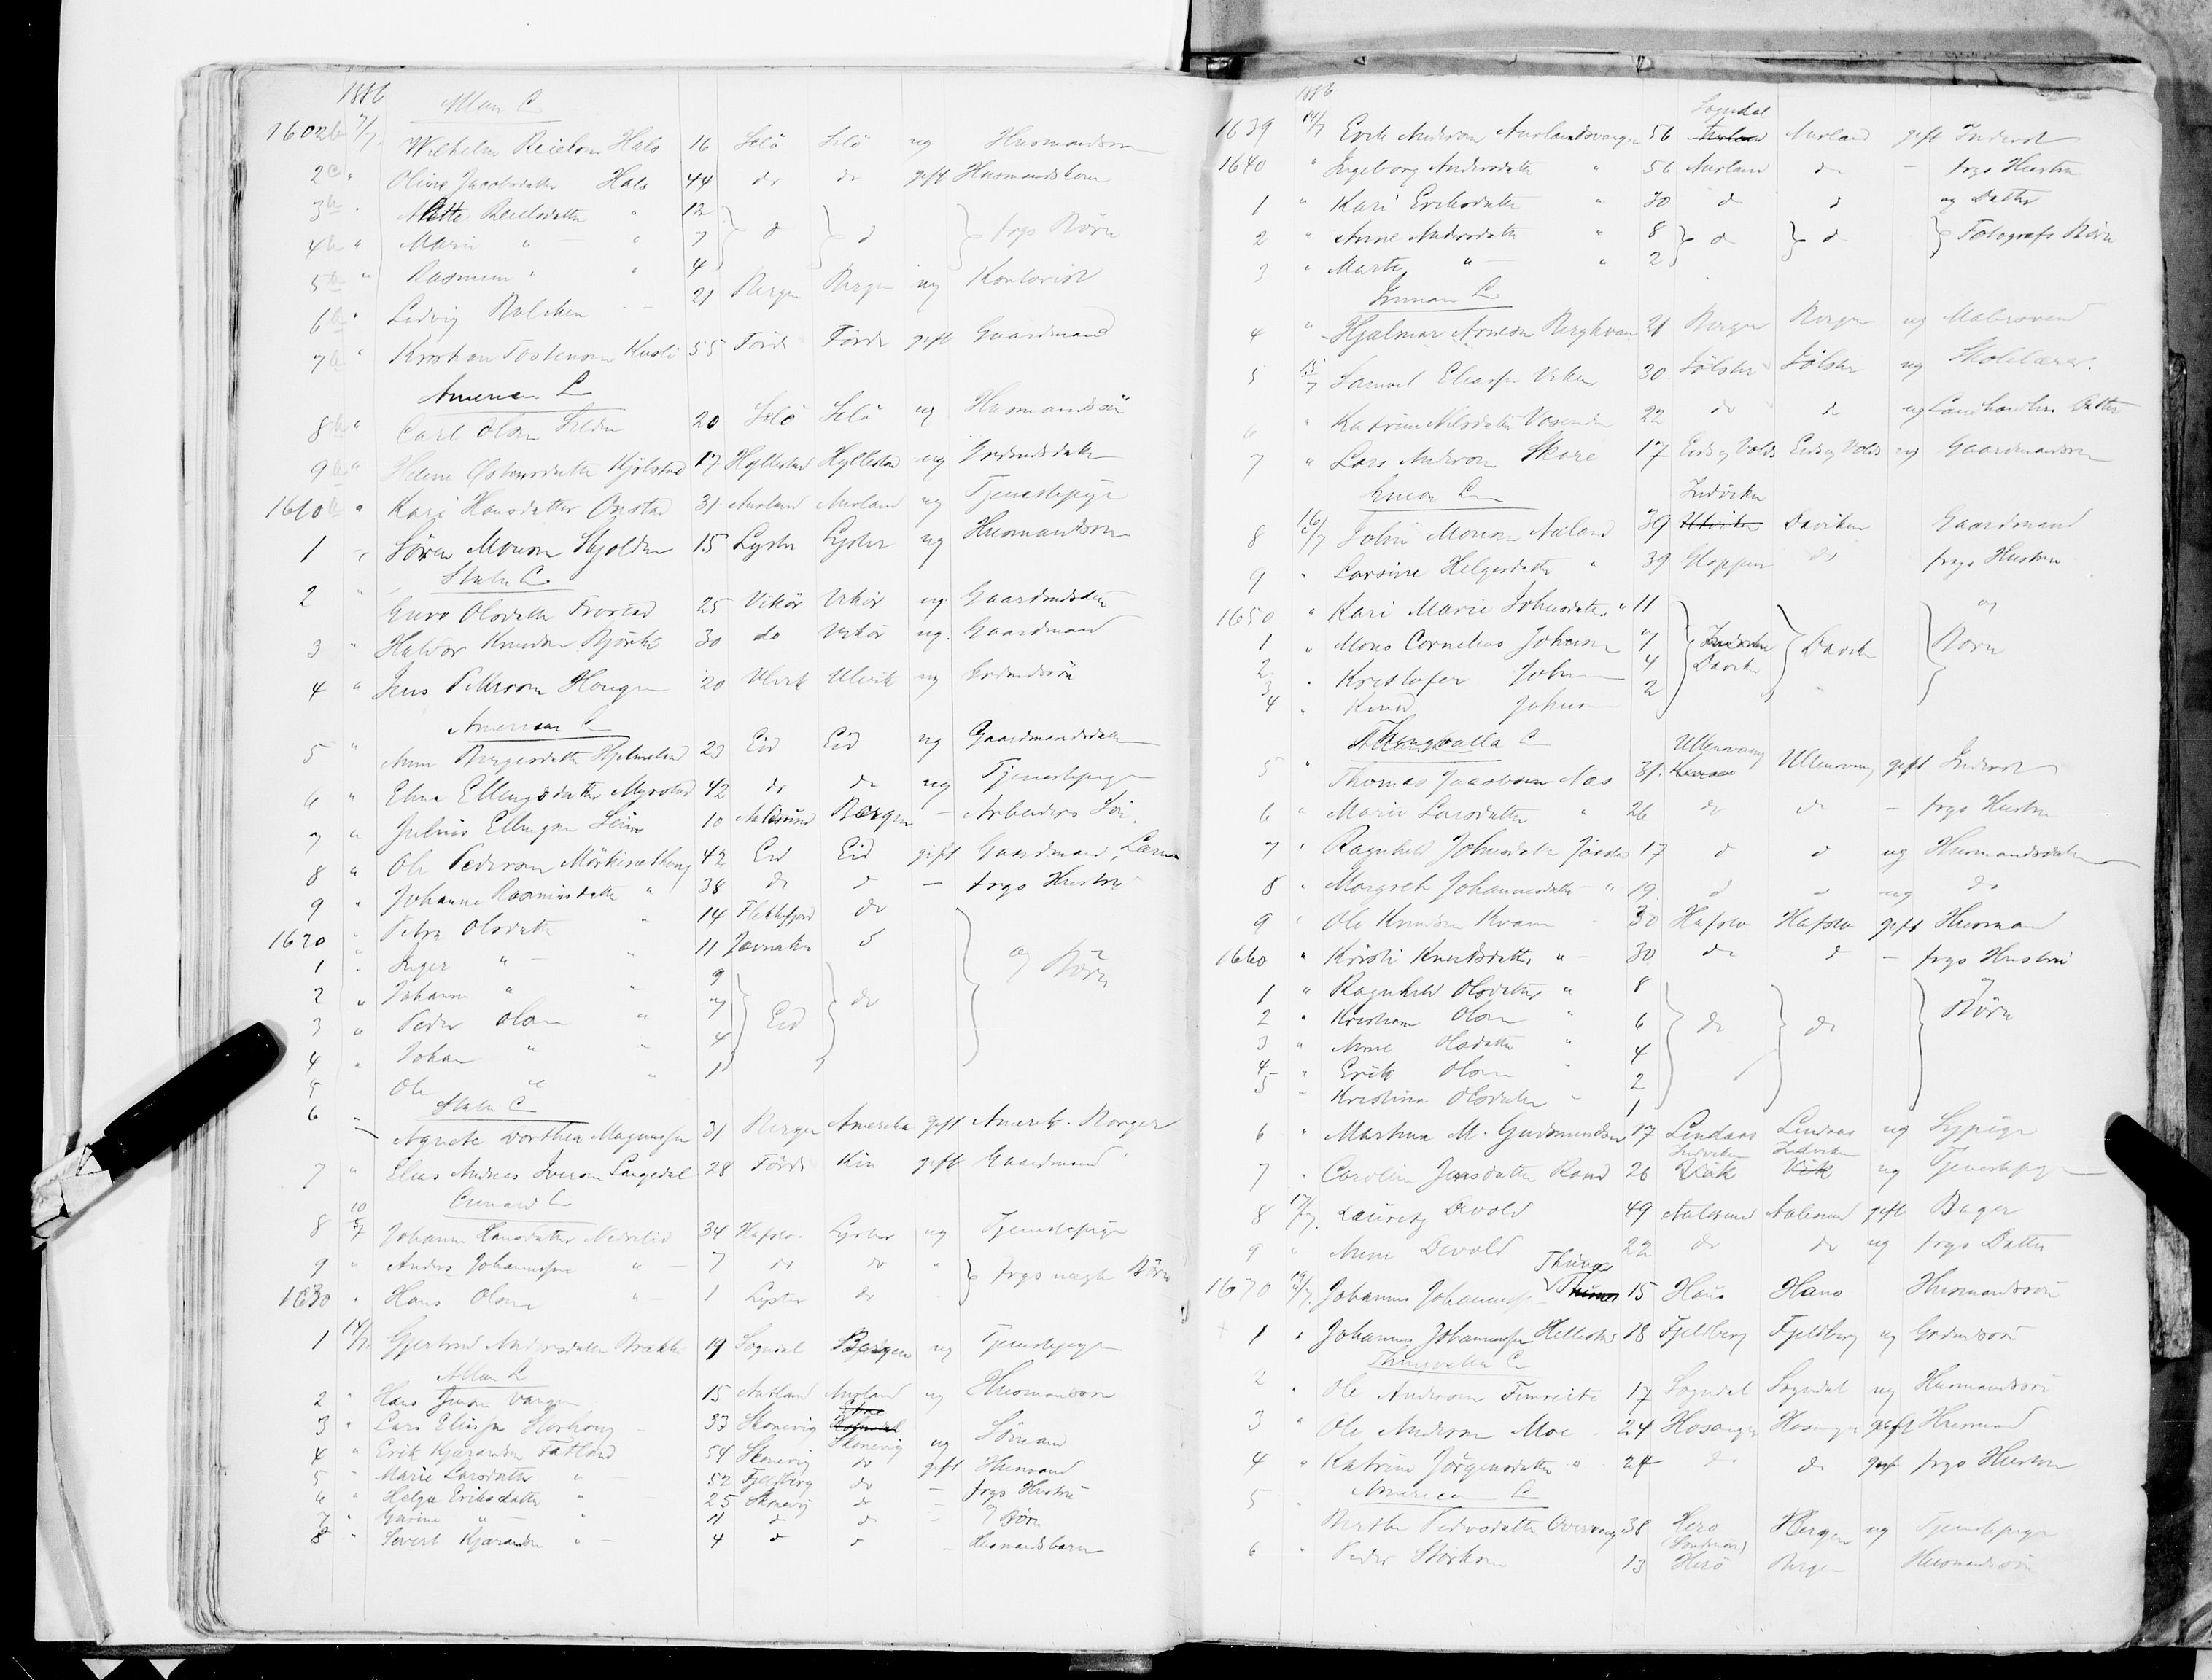 1886
Allan L
1602b 7/7 Wilhelm Reielsen Hals 16 Selö Selö ug Husmandssøn
2c " Oline Jacobsdatter Hals 44 do do gift Husmandskone
3b " Mette Reielsdatter " 12
4b " Marie " " 7 } d } d } frgs Börn
5b " Rasmine " " 4
6b " Ludvig Balchen 21 Bergen Bergen ug Kontorist
7b " Kristian Tostensen Kusli 55 Förde Förde gift Gaardmand
American L
8b " Carl Olsen 20 Selö Selö ug Husmandssön
9b " Helene Østensdatter Kjölstad 17 Hyllestad Hyllestad ug Grdmdsdatter
1610b " Kari Hansdatter Onstad 31 Aurland Aurland ug Tjenestepige
1 " Sören Monsen Skjolden 15 Lyster Lyster ug Husmandssøn
State L
2 " Guro Olsdatter Frøstad 25 Vikör Vikör ug Gaardmdsdatter
3 " Haldor Knudsen Björke 30 do Vikör ug Gaardmand
4 " Jens Pettersen Hougen 20 Ulvik Ulvik ug Grdmdssön
American L
5 " Anne Børgesdatter Hjelmeland 23 Eid Eid ug Gaardmandsdatter
6 " Elina Ellingsdatter Myrostad 42 do do ug Tjenestepige
7 " Julius Ellingsen Seim 10 Aalesund Bergen - Arbeiders Sön
8 " Ole Pedersen Mörkerethoug 42 Eid Eid gift Gaardmand, Lærer
9 " Johanne Rasmusdatter " 38 do d - frgs Hustru
1620 " Petra Olsdatter " 14 Flekkefjord do
1 " Inger " - " 11 Jevnaker d
2 " Johanne " " 9 } og Börn
3 " Peder Olsen " 7 } Eid } do
4 " Johan " " 4
5 Ole " " 1
State L
6 " Agnete Dorthea Magnussen 31 Bergen Amerika gift Amerik. Borger
7 " Elias Andreas Iversen Langedal 28 Förde Kin gift Gaardmand
Cunard L
8 10/7 Johanne Hansdatter Nedrelid 34 Hafslo Lyster ug Tjenestepige
9 " Anders Johannessen " - 7 do do " } frgs uægte Börn
1630 " Hans Olsen " - 1 Lyster do
1 14/7 Gjertrud Andersdatter Brække 19 Sogndal Bergen ug Tjenestepige
Allan L
2 " Hans Jensen Vangen 15 Aurland Aurland ug Husmandssøn
3 " Lars Eliassen Storhoug 33 Skonevig Etne Skonevig ug Sömand
4 " Erik Kjærandsen Fatland 54 Skonevig do gift Husmand
5 " Marie Larsdatter " 52 Fjeldberg do - frgs Hustru
6 " Helga Eriksdatter " 25 Skonevig do - og Børn
7 " Gurine " - " 11 d d -
8 " Severt Kjærandsen " - 4 d d - Husmandsbarn
1886
1639 14/7 Erik Andersen Aurlandsvangen 56 Sogndal Aurland gift Inderst
1640 " Ingeborg Andersdatter " 56 Aurland do - frgs Hustru
1 " Kari Eriksdatter " 30 d d og Datter
2 " Anne Andersdatter " 8 } d } d } Fotografs Börn
3 " Marte " - " 2
Inman L
4 " Hjalmar Arnesen Bergkvam 21 Bergen Bergen ug Malersvend
5 15/7 Samuel Eliassen Viken 30 Jölster Jölster ug Skolelærer
6 " Katrine Nilsdatter Vasenden 22 do do ug Landhandlers Datter
7 " Lars Andersen Skare 17 Eidsvold Eidsvold ug Gaardmandssøn
Guion L
8 16/7 John Monsen Aaland 39 Indviken Daviken Gaardmand
9 " Larsine Helgesdatter " 39 Gloppen do frgs Hustru
1650 " Kari Marie Johnsdatter " 11 og
1 " Mons Cornelius Johnsen 7 } Indviken } Daviken } Børn
2 " Kristofer Johnsen 4 Daviken
3 4 " Knud Johnsen 2 "
Thingvalla L
5 " Thomas Jacobsen Næs 31 Ullensvang Ullensvang gift Inderst
6 " Marie Larsdatter " 26 do do - frgs Hustru
7 " Ragnhild Johnsdatter 17 d d ug Husmandsdatter
8 " Margrete Johannesdatter " 19 d d ug do
9 " Ole Knudsen Kvam 30 Hafslo Hafslo gift Husmand
1660 " Kristi Knudsdatter " - 30 do d - frgs Hustru
1 " Ragnhild Olsdatter " 8 og
2 " Kristian Olsen " 6 } do } do } Börn
3 " Anne Olsdatter " 4
4 " Erik Olsen " 2
5 - Kristina Olsdatter " 1
6 " Martina M. Gudmundsen 17 Lindaas Lindaas ug Sypige
7 " Caroline Jensdatter Rand 26 Indviken Indviken ug Tjenestepige
8 17/7 Lauritz Devold 49 Aalesund Aalesund gift Bager
9 " Anne Devold 22 do do ug frgs Datter
1670 19/7 Johannes Johannessen Thunes 15 Haus Haus Husmandssön
1 " Johannes Johannessen Hellestø 18 Fjeldberg Fjeldberg ug Grdmdssön
Thingvalla L
2 " Ole Andersen Fimreite 17 Sogndal Sogndal ug Husmandssön
3 " Ole Andersen Moe 24 Hosanger Hosanger gift Husmand
4 " Katrine Jörgensdatter " 24 do do gift frgs Hustru
American L
5 " Berthe Pedersdatter Overvaag 38 Herø (Söndmör) Bergen ug Tjenestepige
6 " Peder Storholm 13 Herö Bergen Husmandssön